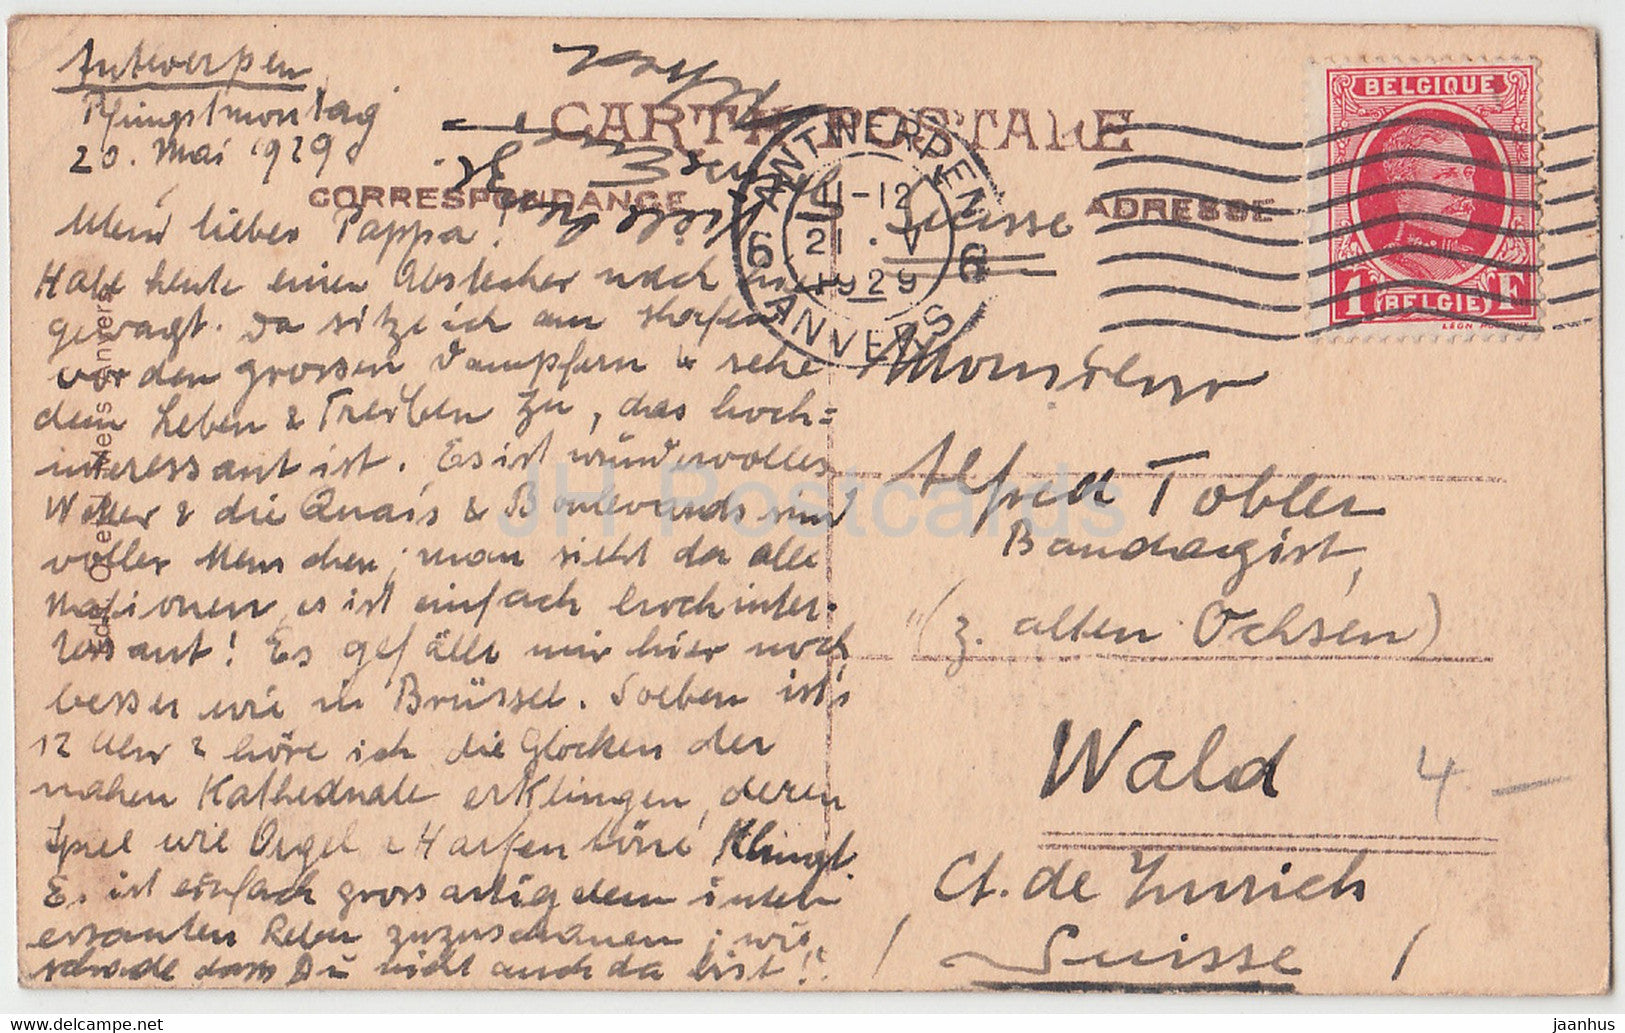 Antwerpen
Pfingstmontag
20. Mai 1929
CARTE POSTALE
CORRESPONDANCE
ADRESSE
BELGIQUE
1 F
BELGIË
ANTWERPEN
11-12
21. V
1929
6 6
ANVERS
Suisse
Mein lieber Pappa!
Habe heute einen Abstecher nach hier
gewagt. Da sitze ich am Hafen
vor den grossen Dampfern & sehe
dem Leben & Treiben zu, das hoch=
interessant ist. Es ist wundervolles
Wetter & die Quais & Boulevards sind
voller Menschen; man sieht da alle
Nationen, es ist einfach hochinter-
essant! Es gefällt mir hier noch
besser wie in Brüssel. Soeben ist's
12 Uhr & höre ich die Glocken der
nahen Kathedrale erklingen, deren
Spiel wie Orgel & Harfentöne klingt.
Es ist einfach grossartig dem inter
essanten Leben zuzuschauen; wie
schade dass Du nicht auch da bist!
Monsieur
Alfred Tobler
Bandagist,
(z. alten Ochsen)
Wald
4 –
Ct. de Zurich
( Suisse )
JH Postcards
jaanhus
jaanhus.com